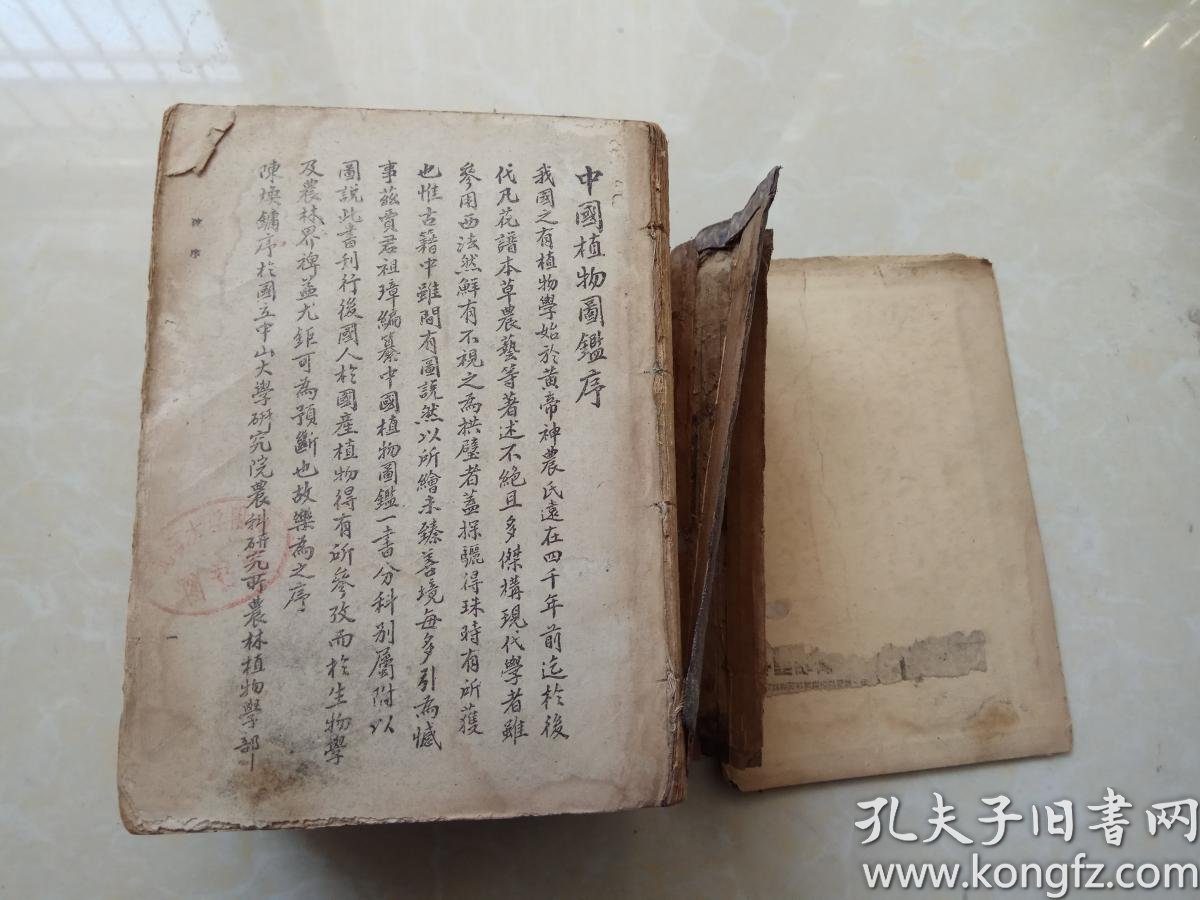 中國植物圖鑑序
我國之有植物學始於黃帝神農氏遠在四千年前迄於後
代凡花譜本草農藝等著述不絕且多傑構現代學者雖
參用西法然鮮有不視之為拱璧者蓋探驪得珠時有所獲
也惟古籍中雖間有圖說然以所繪未臻善境每多引為憾
事茲賈君祖璋編纂中國植物圖鑑一書分科別屬附以
圖說此書刊行後國人於國產植物得有所參攷而於生物學
及農林界裨益尤鉅可為預斷也故樂為之序
陳煥鏞序於國立中山大學研究院農科研究所農林植物學部
序
一
孔夫子旧书网
www.kongfz.com